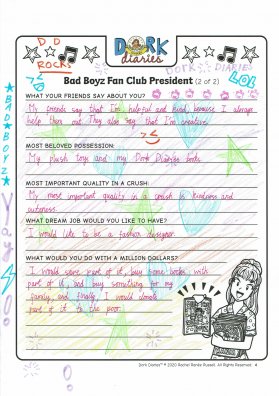 D D
ROCKS
DORK
diaries
DORK DIARIES
LOL
Bad Boyz Fan Club President (2 of 2)
WHAT YOUR FRIENDS SAY ABOUT YOU?
My friends say that I'm helpful and kind, because I always
help them out. They also say that I'm creative.
MOST BELOVED POSSESSION:
My plush toys and my Dork Diaries books.
MOST IMPORTANT QUALITY IN A CRUSH:
My most important quality in a crush is kindness and
cuteness.
WHAT DREAM JOB WOULD YOU LIKE TO HAVE?
I would like to be a fashion designer.
WHAT WOULD YOU DO WITH A MILLION DOLLARS?
I would save part of it, buy some books with
part of it, and buy something for my
family, and finally, I would donate
part of it to the poor.
BAD BOYZ
Yay!
Dork Diaries™ © 2020 Rachel Renée Russell. All Rights Reserved. 4